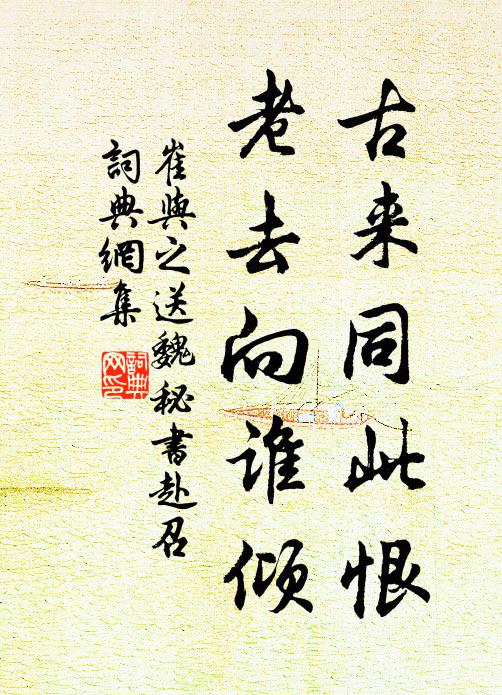 古来同此恨
老去向谁倾
崔與之送魏秘書赴召
詞典網集
詞典网印